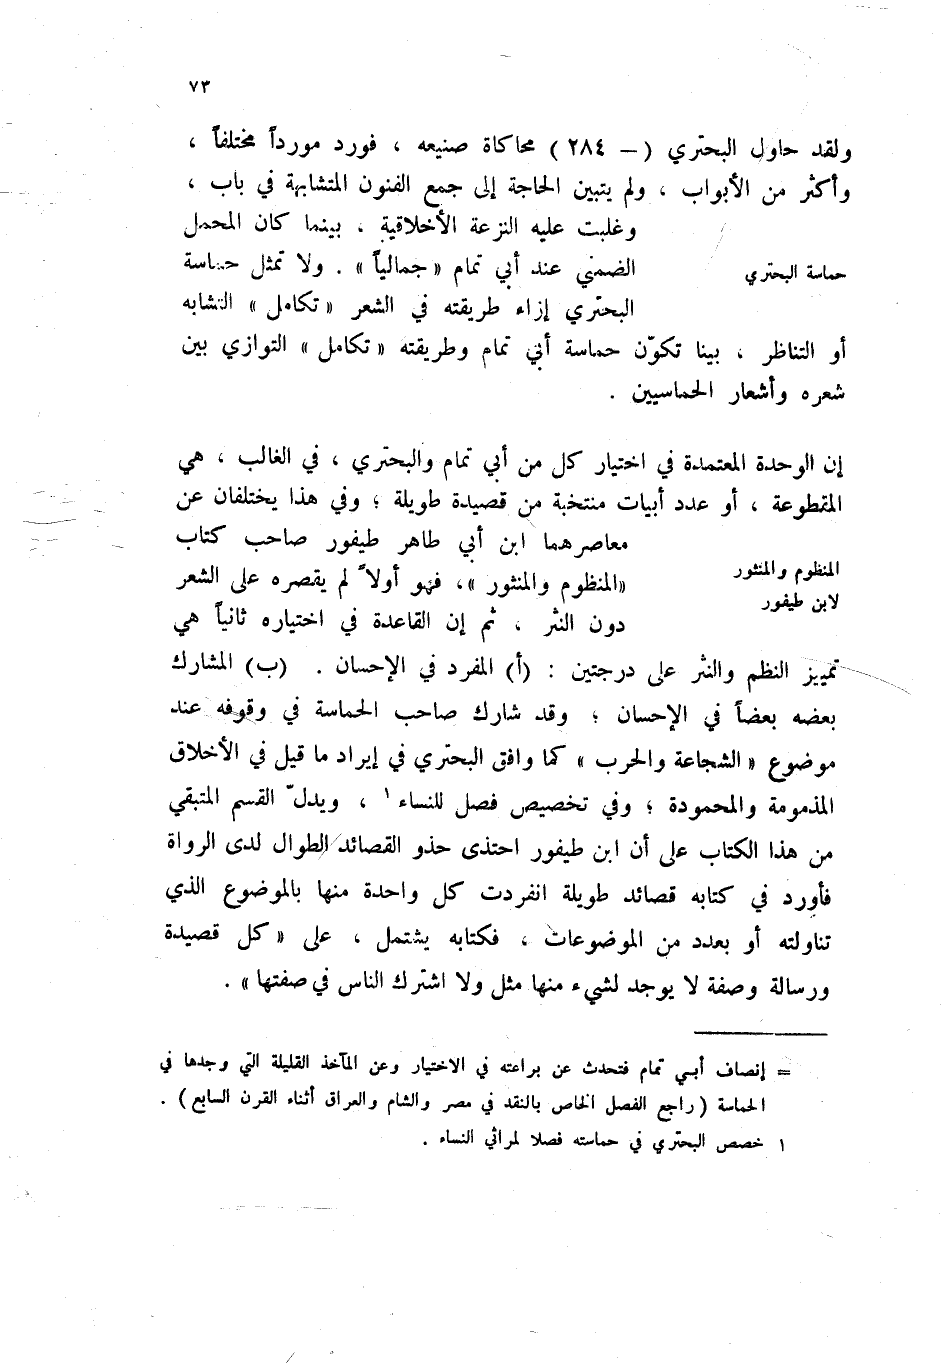 ٧٣
ولقد حاول البحتري (– ٢٨٤) محاكاة صنيعه ، فورد مورداً مختلفاً ،
وأكثر من الأبواب ، ولم يتبين الحاجة إلى جمع الفنون المتشابهة في باب ،
وغلبت عليه النزعة الأخلاقية ، بينما كان المحمل
حماسة البحتري
الضمني عند أبي تمام « جمالياً » . ولا تمثل حماسة
البحتري إزاء طريقته في الشعر « تكامل » التشابه
أو التناظر ، بينا تكوّن حماسة أبي تمام وطريقته « تكامل » التوازي بين
شعره وأشعار الحماسيين .
إن الوحدة المعتمدة في اختيار كل من أبي تمام والبحتري ، في الغالب ، هي
المقطوعة ، أو عدد أبيات منتخبة من قصيدة طويلة ؛ وفي هذا يختلفان عن
معاصرهما ابن أبي طاهر طيفور صاحب كتاب
المنظوم والمنثور
لابن طيفور
« المنظوم والمنثور » ، فهو أولاً لم يقصره على الشعر
دون النثر ، ثم إن القاعدة في اختياره ثانياً هي
تمييز النظم والنثر على درجتين : (أ) المفرد في الإحسان . (ب) المشارك
بعضه بعضاً في الإحسان ؛ وقد شارك صاحب الحماسة في وقوفه عند
موضوع « الشجاعة والحرب » كما وافق البحتري في إيراد ما قيل في الأخلاق
المذمومة والمحمودة ؛ وفي تخصيص فصل للنساء ١ ، ويدلّ القسم المتبقي
من هذا الكتاب على أن ابن طيفور احتذى حذو القصائد الطوال لدى الرواة
فأورد في كتابه قصائد طويلة انفردت كل واحدة منها بالموضوع الذي
تناولته أو بعدد من الموضوعات ، فكتابه يشتمل ، على « كل قصيدة
ورسالة وصفة لا يوجد لشيء منها مثل ولا اشترك الناس في صفتها » .
= إنصاف أبي تمام فتحدث عن براعته في الاختيار وعن المآخذ القليلة التي وجدها في
الحماسة (راجع الفصل الخاص بالنقد في مصر والشام والعراق أثناء القرن السابع) .
١ خصص البحتري في حماسته فصلا لمراثي النساء .